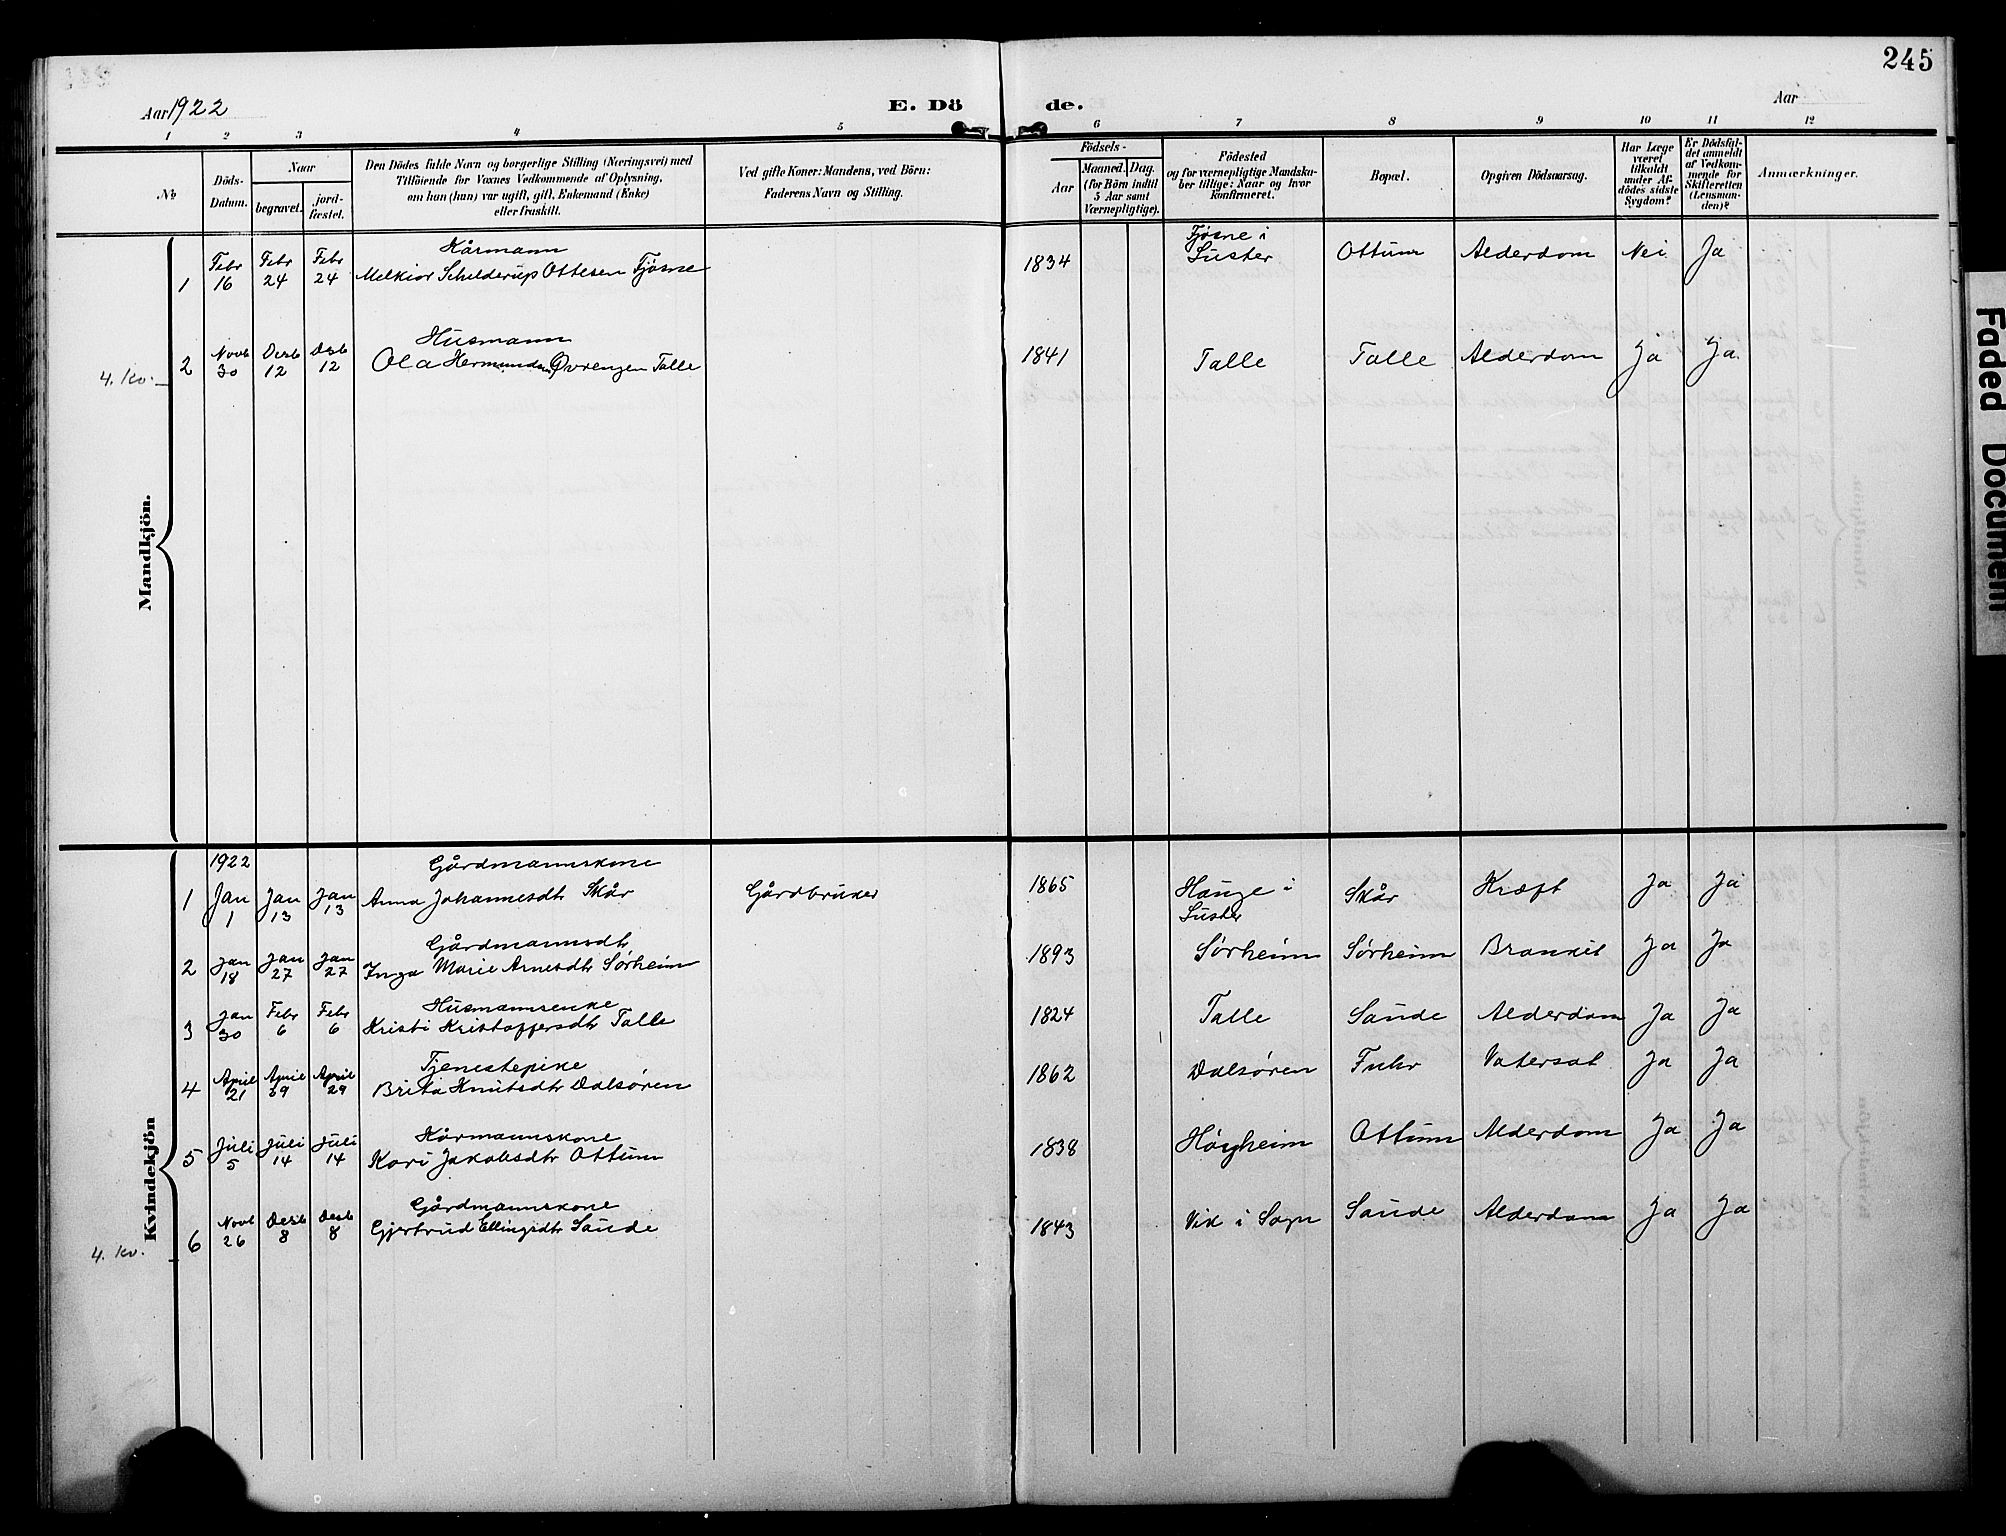 245
Aar 1922
E. Dö de.
Aar
1 2 3 4 5 6 7 8 9 10 11 12
No
Döds-Datum.
Naar
begravet.
jord-fæstet.
Den Dödes fulde Navn og borgerlige Stilling (Næringsvei) med
Tilföiende for Voxnes Vedkommende af Oplysning,
om han (hun) var ugift, gift, Enkemand (Enke)
eller fraskilt.
Ved gifte Koner: Mandens, ved Börn:
Faderens Navn og Stilling.
Födsels-
Aar
Maaned. Dag.
(for Börn indtil
5 Aar samt
Værnepligtige).
Födested
og for værnepligtige Mandska-
ber tillige: Naar og hvor
konfirmeret.
Bopæl.
Opgiven Dödsaarsag.
Har Læge
været
tilkaldt
under Af-
dödes sidste
Sygdom?
Er Dödsfal-
det anmeldt
af Vedkom-
mende for
Skifteretten
(Lensman-
den)?
Anmærkninger.
Mandkjön.
Kårmann
1 Febr 16 Febr 24 Febr 24 Melkior Schelderup Ottesen Fjøsne 1834 Fjøsne i Luster Ottum Alderdom Nei Ja
Husmann
4. Kv. 2 Novb 30 Desb 12 Desb 12 Ola Hermundsen Øvrengen Talle 1841 Talle Talle Alderdom Ja Ja
Kvindekjön
1922 Gårdmannskone
1 Jan 1 Jan 13 Jan 13 Anna Johannesdtr Skår Gårdbruker 1865 Hauge i Luster Skår Kræft Ja Ja
Gårdmannsdtr
2 Jan 18 Jan 27 Jan 27 Inga Marie Arnesdtr Sørheim 1893 Sørheim Sørheim Bronkit Ja Ja
Husmannsenke
3 Jan 30 Febr 6 Febr 6 Kristi Kristoffersdtr Talle 1824 Talle Saude Alderdom Ja Ja
Tjenestepike
4 April 21 April 29 April 29 Brita Knutsdtr Dalsøren 1862 Dalsøren Fuhr Vatersot Ja Ja
Kårmannskone
5 Juli 5 Juli 14 Juli 14 Kari Jakobsdtr Ottum 1838 Høyheim Ottum Alderdom Ja Ja
Gårdmannskone
4. Kv. 6 Novb 26 Desb 8 Desb 8 Gjertrud Ellingsdtr Saude 1843 Vik i Sogn Saude Alderdom Ja Ja
Faded Document